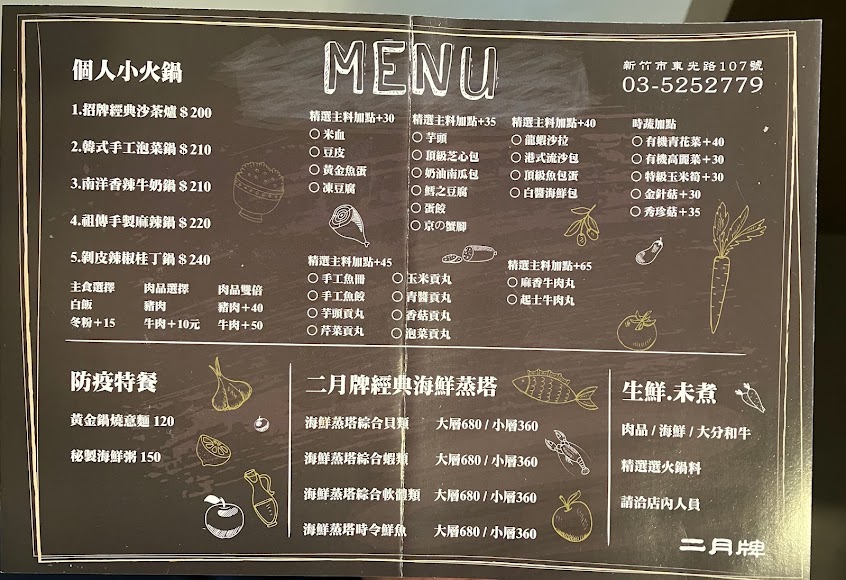 MENU
新竹市東光路107號
03-5252779
個人小火鍋
1.招牌經典沙茶爐＄200
2.韓式手工泡菜鍋＄210
3.南洋香辣牛奶鍋＄210
4.祖傳手製麻辣鍋＄220
5.剝皮辣椒桂丁鍋＄240
主食選擇 肉品選擇 肉品雙倍
白飯 豬肉 豬肉＋40
冬粉＋15 牛肉＋10元 牛肉＋50
精選主料加點+30
○ 米血
○ 豆皮
○ 黃金魚蛋
○ 凍豆腐
精選主料加點+35
○ 芋頭
○ 頂級芝心包
○ 奶油南瓜包
○ 鱈之豆腐
○ 蛋餃
○ 京の蟹腳
精選主料加點+40
○ 龍蝦沙拉
○ 港式流沙包
○ 頂級魚包蛋
○ 白醬海鮮包
時蔬加點
○ 有機青花菜＋40
○ 有機高麗菜＋30
○ 特級玉米筍＋30
○ 金針菇＋30
○ 秀珍菇＋35
精選主料加點+45
○ 手工魚冊 ○ 玉米貢丸
○ 手工魚餃 ○ 青醬貢丸
○ 芋頭貢丸 ○ 香菇貢丸
○ 芹菜貢丸 ○ 泡菜貢丸
精選主料加點+65
○ 麻香牛肉丸
○ 起士牛肉丸
防疫特餐
黃金鍋燒意麵 120
秘製海鮮粥 150
二月牌經典海鮮蒸塔
海鮮蒸塔綜合貝類 大層680 / 小層360
海鮮蒸塔綜合蝦類 大層680 / 小層360
海鮮蒸塔綜合軟體類 大層680 / 小層360
海鮮蒸塔時令鮮魚 大層680 / 小層360
生鮮.未煮
肉品 / 海鮮 / 大分和牛
精選選火鍋料
請洽店內人員
二月牌